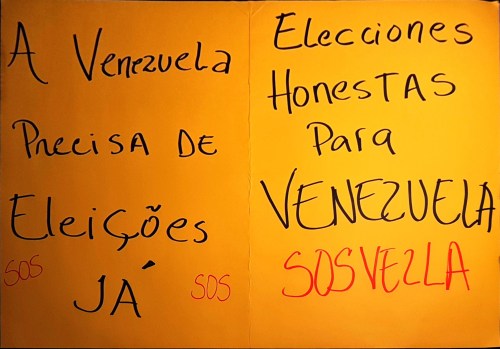 A Venezuela
Precisa de
Eleições
SOS
JÁ
SOS
Elecciones
Honestas
Para
VENEZUELA
SOSVEZLA